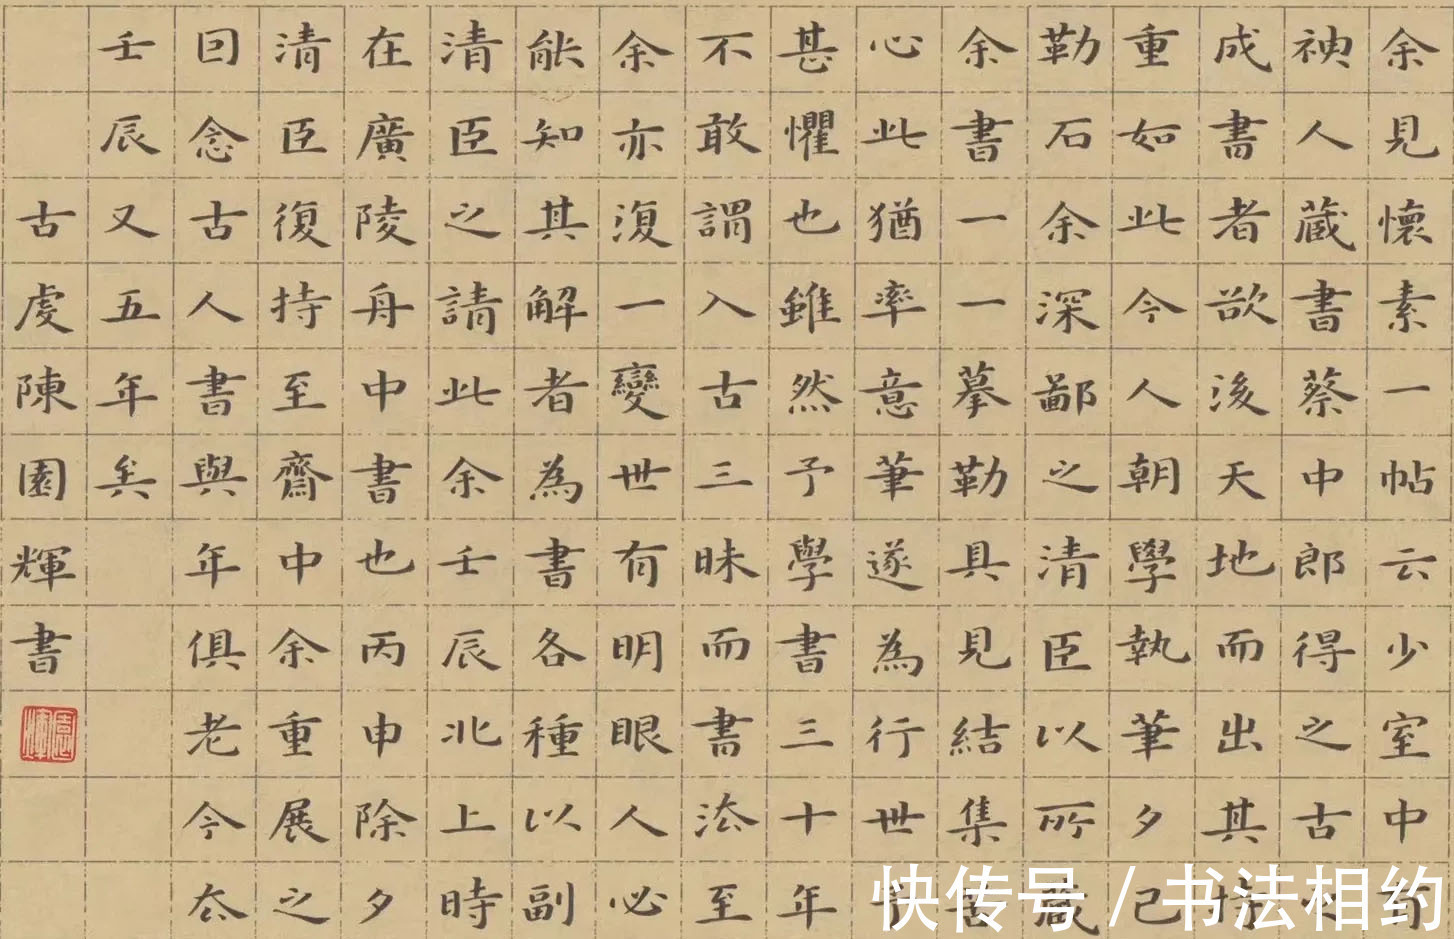 余見懷素一帖云少室中有
神人藏書蔡中郎得之古
成書者欲後天地而出其持
重如此今人朝學執筆夕已
勒石余深鄙之清臣以所藏
余書一一摹勒具見結集苦
心此猶率意筆遂為行世
甚懼也雖然予學書三十年
不敢謂入古三昧而書法至
余亦復一變世有明眼人必
能知其解者為書各種以副
清臣之請此余壬辰北上時
在廣陵舟中書也丙申除夕
清臣復持至齋中余重展之
回念古人書與年俱老今去
壬辰又五年矣
古虔陳園輝書
快传号 / 书法相约